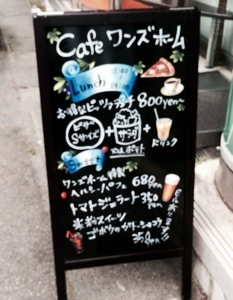 Cafe ワンズホーム
Lunch 11:00
14:00
お得なピッツァランチ 800yen~
ピザ Sサイズ + サラダ + ドリンク
又は ポテト
Sweet
ワンズホーム特製
ヘルシーパフェ 680yen
トマトジェラート 350yen
米粉スイーツ
350yen